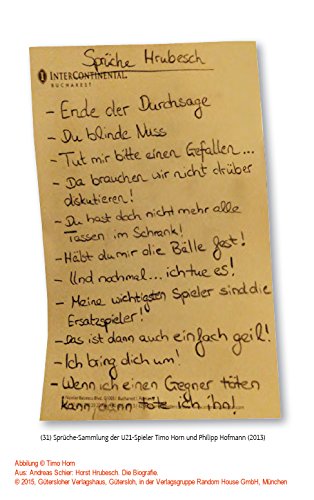 Sprüche Hrubesch
INTERCONTINENTAL
BUCHAREST
- Ende der Durchsage
- Du blinde Nuss
- Tut mir bitte einen Gefallen...
- Da brauchen wir nicht drüber
diskutieren!
- Du hast doch nicht mehr alle
Tassen im Schrank!
- Hälst du mir die Bälle fest!
- Und nochmal... ich tue es!
- Meine wichtigsten Spieler sind die
Ersatzspieler!
- Das ist dann auch einfach geil!
- Ich bring dich um!
- Wenn ich einen Gegner töten
kann, dann töte ich ihn!
(31) Sprüche-Sammlung der U21-Spieler Timo Horn und Philipp Hofmann (2013)
Abbilung © Timo Horn
Aus: Andreas Schier: Horst Hrubesch. Die Biografie.
© 2015, Gütersloher Verlagshaus, Gütersloh, in der Verlagsgruppe Random House GmbH, München